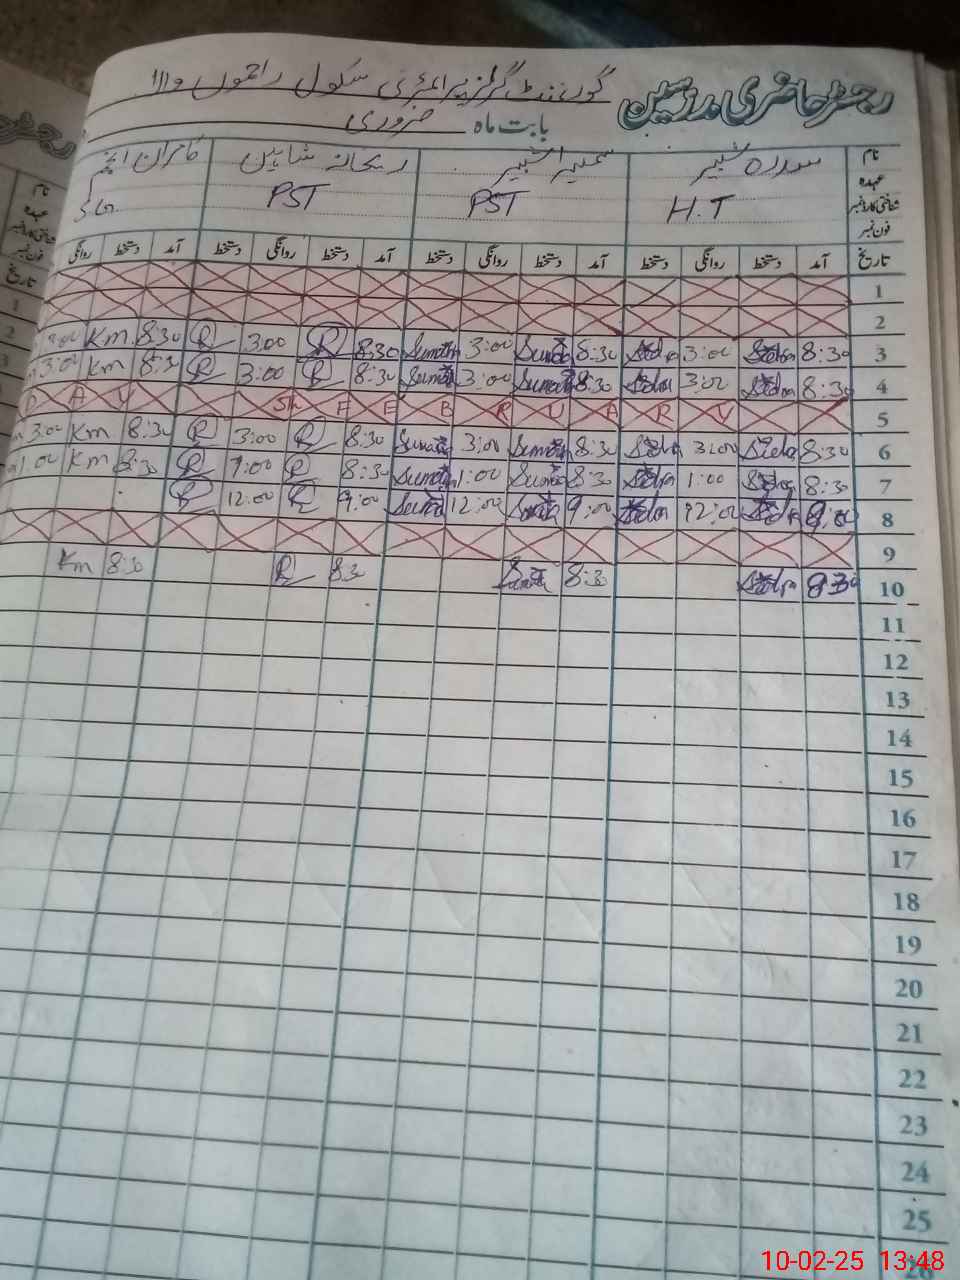 رجسٹر حاضری مدرسین
گورنمنٹ گرلز پرائمری سکول راجھوں والا
بابت ماہ فروری
نام سدرہ شبیر سمیرا شبیر ریحانہ شاہین کامران انجم
عہدہ
شناختی کارڈ نمبر H.T PST PST
فون نمبر
تاریخ آمد دستخط روانگی دستخط آمد دستخط روانگی دستخط آمد دستخط روانگی دستخط آمد دستخط روانگی
1
2
3:00 Km 8:30 R 3:00 R 8:30 3:00 8:30 3:00 8:30 3
3:00 Km 8:30 R 3:00 R 8:30 3:00 8:30 3:00 8:30 4
A Y 5th F E B R U A R Y 5
3:00 Km 8:30 R 3:00 R 8:30 3:00 8:30 3:00 8:30 6
1:00 Km 8:30 R 1:00 R 8:30 1:00 8:30 1:00 8:30 7
R 12:00 R 9:00 12:00 9:00 12:00 9:00 8
9
Km 8:30 R 8:30 8:30 8:30 10
11
12
13
14
15
16
17
18
19
20
21
22
23
24
25
10-02-25 13:48